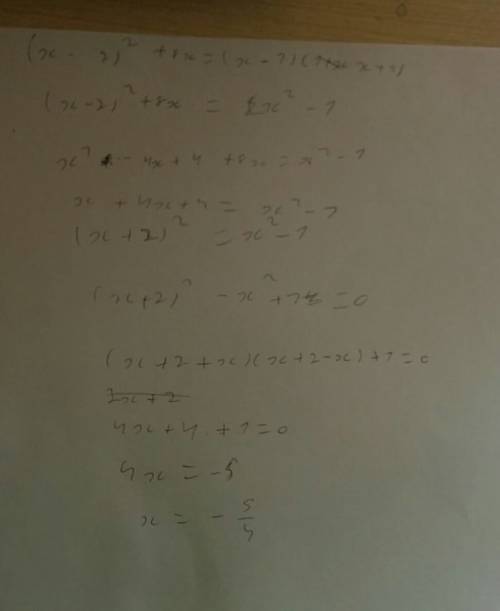 (x - 2)² + 8x = (x - 1)(x + 1)
(x - 2)² + 8x = x² - 1
x² - 4x + 4 + 8x = x² - 1
x + 4x + 4 = x² - 1
(x + 2)² = x² - 1
(x + 2)² - x² + 1 = 0
(x + 2 + x)(x + 2 - x) + 1 = 0
2x + 2
4x + 4 + 1 = 0
4x = -5
x = - 5/4